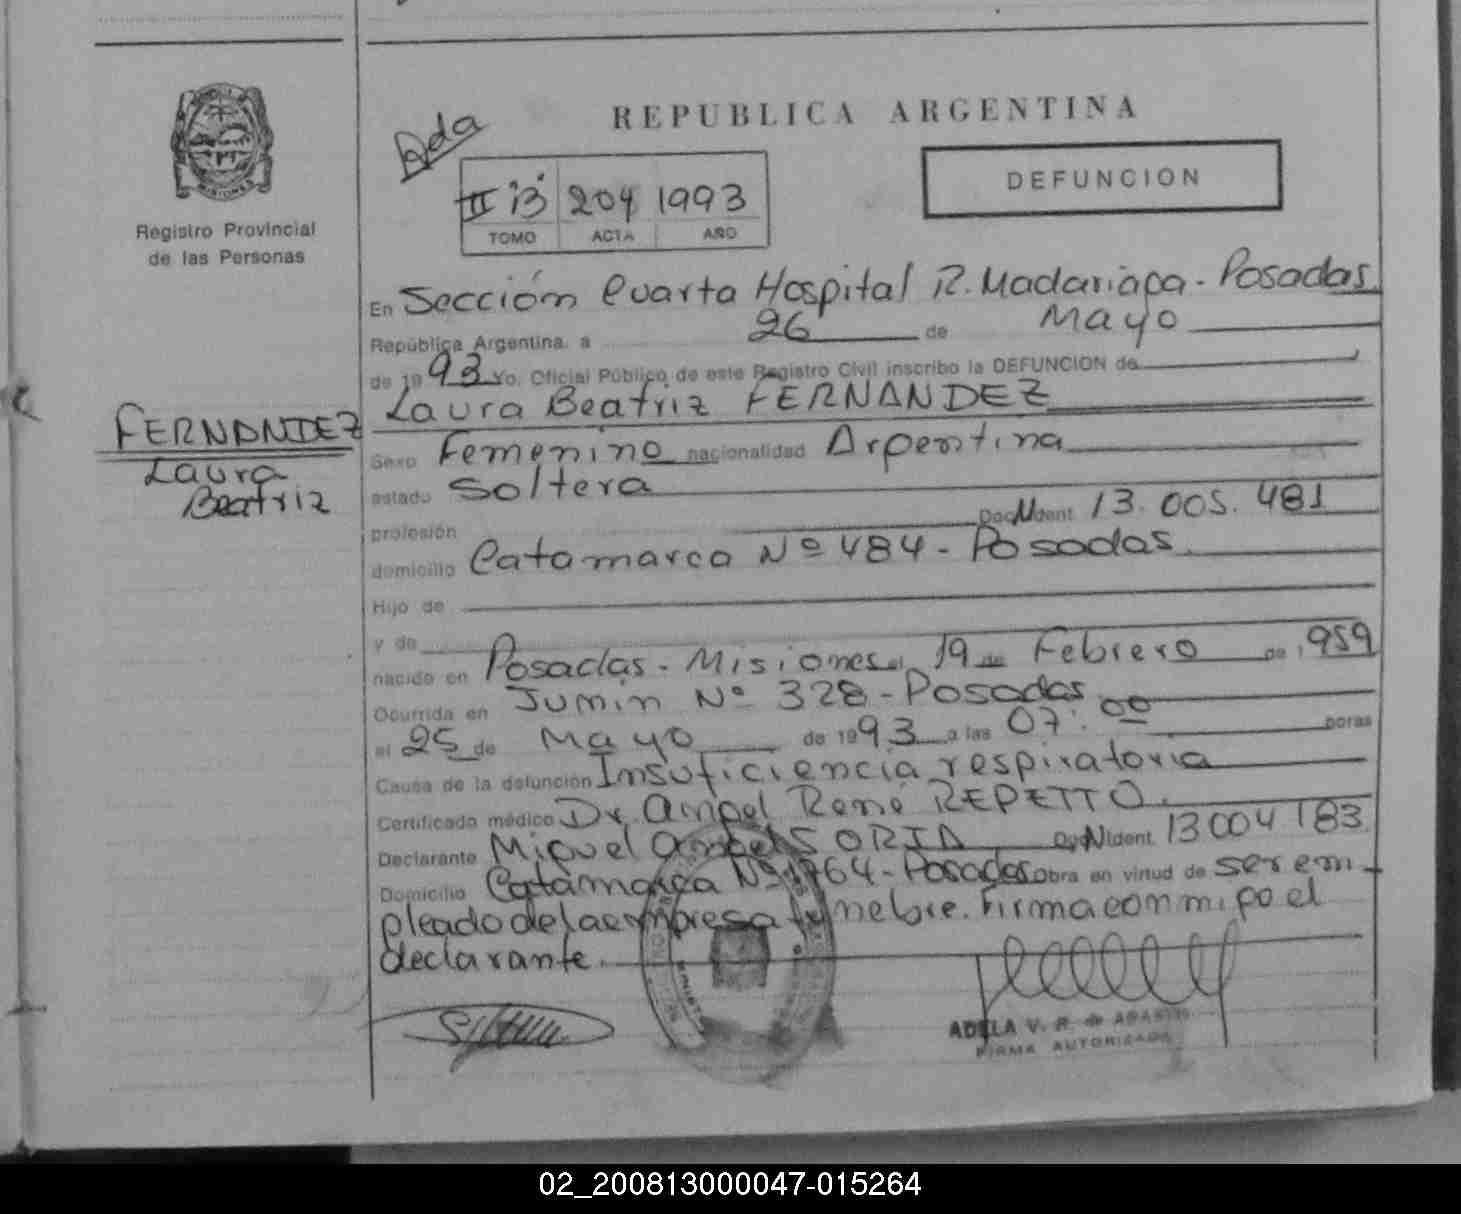 REPUBLICA ARGENTINA
DEFUNCION
Ada
III "B" 204 1993
TOMO ACTA AÑO
MISIONES
Registro Provincial
de las Personas
FERNANDEZ
Laura
Beatriz
En Sección Cuarta Hospital R. Madariaga - Posadas
República Argentina, a 26 de Mayo
de 1993 Yo, Oficial Público de este Registro Civil inscribo la DEFUNCION de
Laura Beatriz FERNANDEZ
Sexo Femenino nacionalidad Argentina
estado Soltera
profesión Doc. N Ident. 13.005.481
domicilio Catamarca Nº 484 - Posadas
Hijo de
y de
nacido en Posadas - Misiones el 19 de Febrero de 1959
Ocurrida en Junin Nº 328 - Posadas
el 25 de Mayo de 1993 a las 07:00 horas
Causa de la defunción Insuficiencia respiratoria
Certificado médico Dr. Angel René REPETTO.
Declarante Miguel Angel SORIA Doc. N Ident. 13004183
Domicilio Catamarca Nº 1764 - Posadas obra en virtud de ser em-
pleado de la empresa funebre. Firma conmigo el
declarante.
ADELA V. R. de
FIRMA AUTORIZADA
02_200813000047-015264